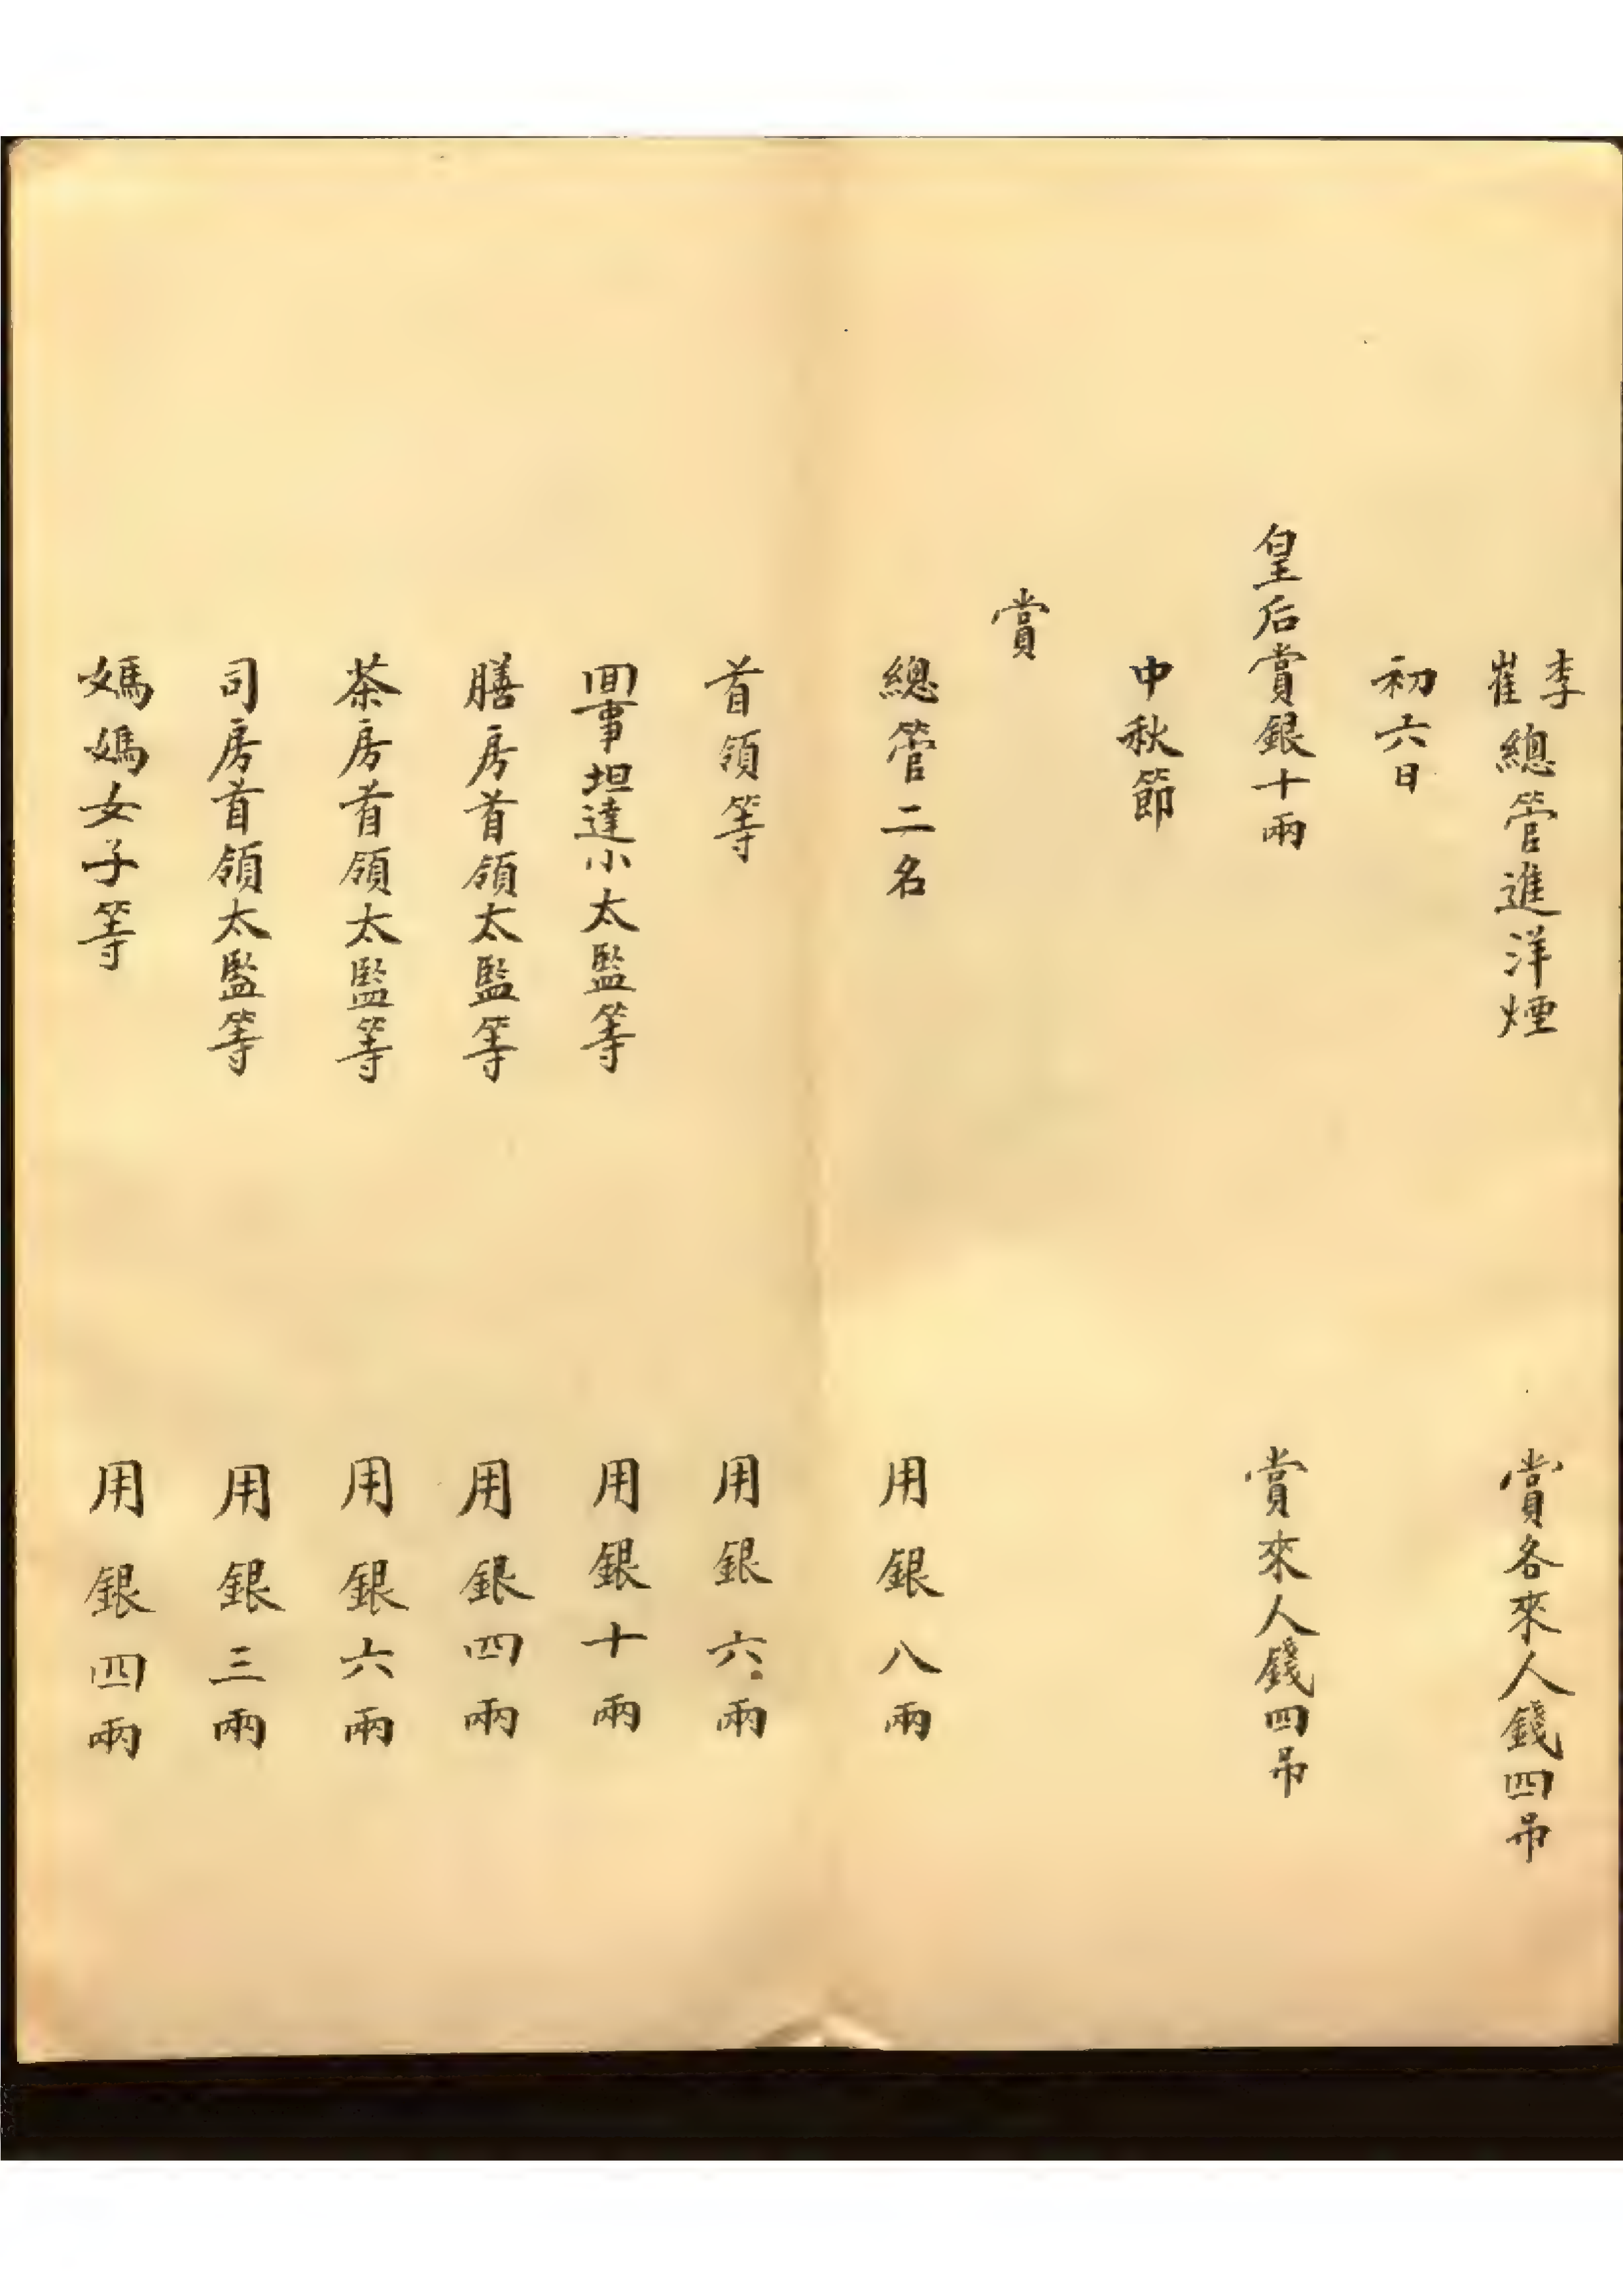 李崔總管進洋煙 賞各來人錢四吊
初六日
皇后賞銀十兩 賞來人錢四吊
中秋節
賞
總管二名 用銀八兩
首領等 用銀六兩
回事坦達小太監等 用銀十兩
膳房首領太監等 用銀四兩
茶房首領太監等 用銀六兩
司房首領太監等 用銀三兩
媽媽女子等 用銀四兩